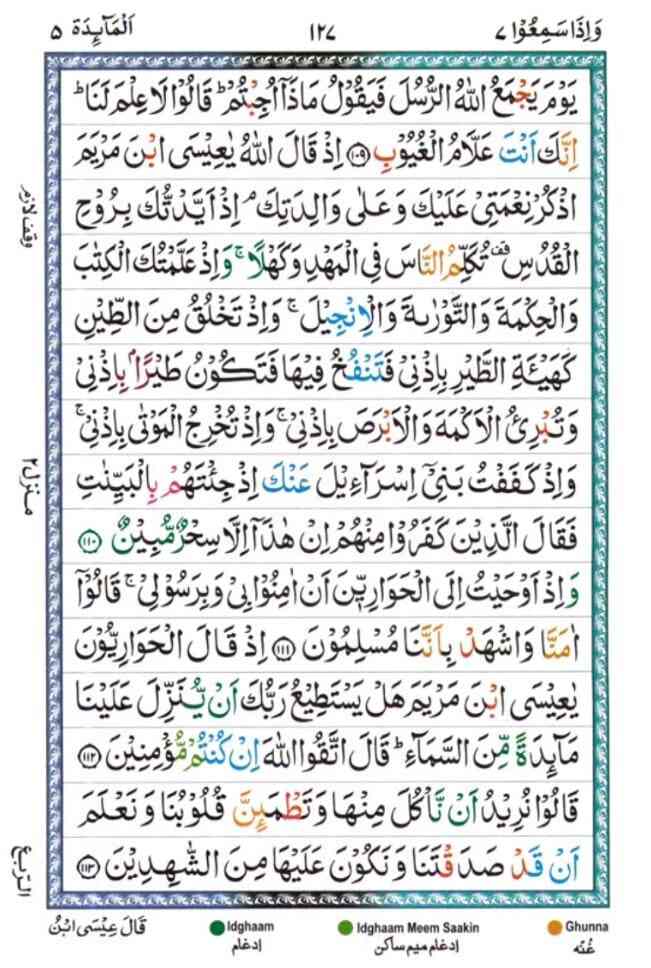 وَاِذَا سَمِعُوْا ٧
١٢٧
اَلْمَآئِدَة ٥
يَوْمَ يَجْمَعُ اللّٰهُ الرُّسُلَ فَيَقُوْلُ مَاذَآ اُجِبْتُمْ ؕ قَالُوْا لَا عِلْمَ لَنَا ؕ
اِنَّكَ اَنْتَ عَلَّامُ الْغُيُوْبِ ﴿١٠٩﴾ اِذْ قَالَ اللّٰهُ يٰعِيْسَى ابْنَ مَرْيَمَ
اذْكُرْ نِعْمَتِىْ عَلَيْكَ وَعَلٰى وَالِدَتِكَ ۘ اِذْ اَيَّدْتُّكَ بِرُوْحِ
الْقُدُسِ قف تُكَلِّمُ النَّاسَ فِى الْمَهْدِ وَكَهْلًا ۚ وَاِذْ عَلَّمْتُكَ الْكِتٰبَ
وَالْحِكْمَةَ وَالتَّوْرٰىةَ وَالْاِنْجِيْلَ ۚ وَاِذْ تَخْلُقُ مِنَ الطِّيْنِ
كَهَيْئَةِ الطَّيْرِ بِاِذْنِىْ فَتَنْفُخُ فِيْهَا فَتَكُوْنُ طَيْرًاۢ بِاِذْنِىْ
وَتُبْرِئُ الْاَكْمَهَ وَالْاَبْرَصَ بِاِذْنِىْ ۚ وَاِذْ تُخْرِجُ الْمَوْتٰى بِاِذْنِىْ ۚ
وَاِذْ كَفَفْتُ بَنِىْۤ اِسْرَآءِيْلَ عَنْكَ اِذْ جِئْتَهُمْ بِالْبَيِّنٰتِ
فَقَالَ الَّذِيْنَ كَفَرُوْا مِنْهُمْ اِنْ هٰذَاۤ اِلَّا سِحْرٌ مُّبِيْنٌ ﴿١١٠﴾
وَاِذْ اَوْحَيْتُ اِلَى الْحَوَارِيّٖنَ اَنْ اٰمِنُوْا بِىْ وَبِرَسُوْلِىْ ۚ قَالُوْۤا
اٰمَنَّا وَاشْهَدْ بِاَنَّنَا مُسْلِمُوْنَ ﴿١١١﴾ اِذْ قَالَ الْحَوَارِيُّوْنَ
يٰعِيْسَى ابْنَ مَرْيَمَ هَلْ يَسْتَطِيْعُ رَبُّكَ اَنْ يُّنَزِّلَ عَلَيْنَا
مَآئِدَةً مِّنَ السَّمَآءِ ؕ قَالَ اتَّقُوا اللّٰهَ اِنْ كُنْتُمْ مُّؤْمِنِيْنَ ﴿١١٢﴾
قَالُوْا نُرِيْدُ اَنْ نَّاْكُلَ مِنْهَا وَتَطْمَئِنَّ قُلُوْبُنَا وَنَعْلَمَ
اَنْ قَدْ صَدَقْتَنَا وَنَكُوْنَ عَلَيْهَا مِنَ الشّٰهِدِيْنَ ﴿١١٣﴾
وقف لازم
منزل ٢
الربع
قَالَ عِيْسَى ابْنُ
Idghaam
ادغام
Idghaam Meem Saakin
ادغام میم ساکن
Ghunna
غُنّه